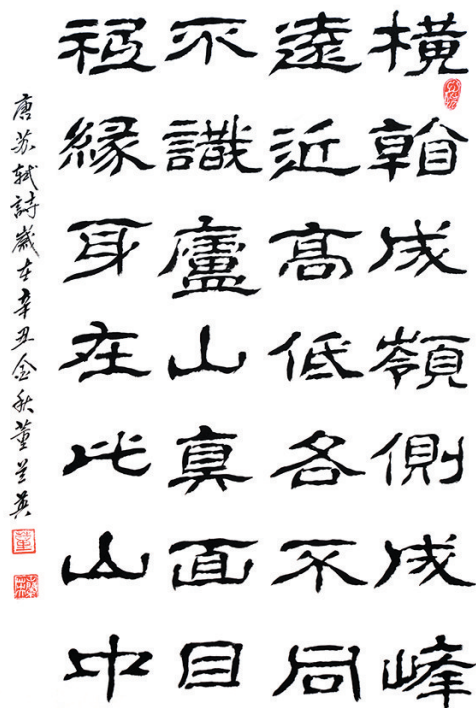 横看成嶺側成峰
遠近高低各不同
不識廬山真面目
祇緣身在此山中
唐苏轼詩歲在辛丑金秋董兰英